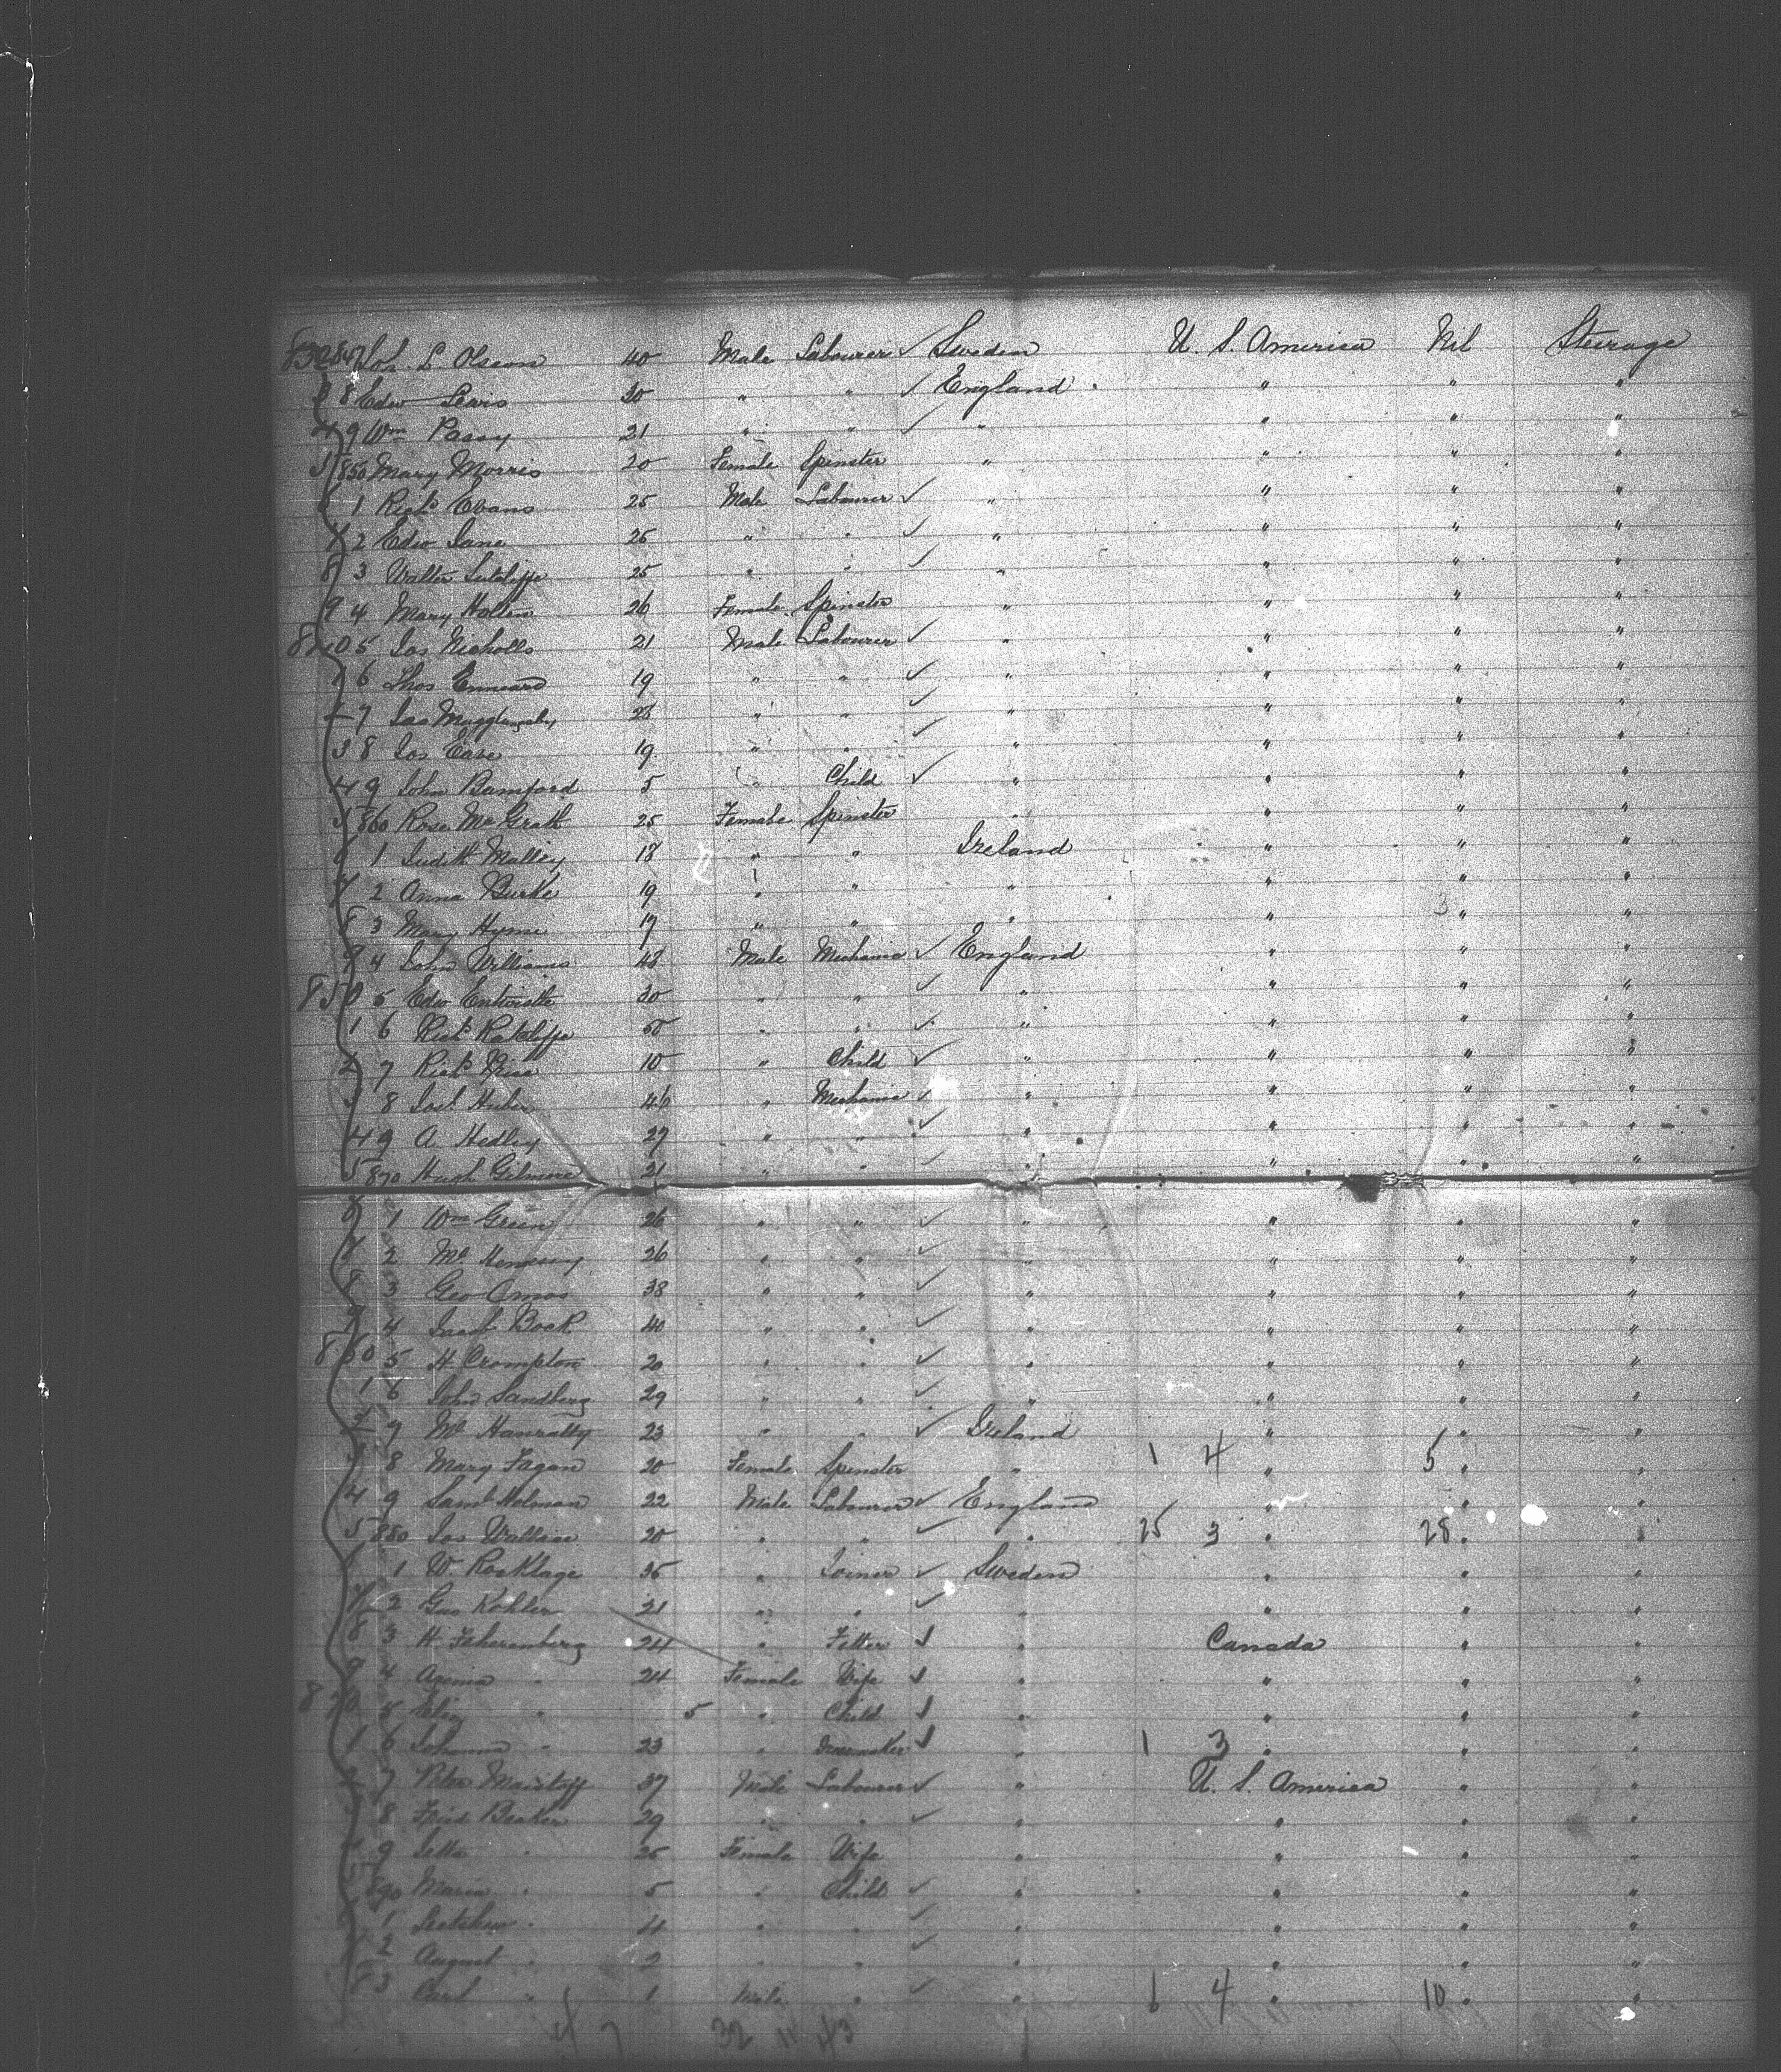 847 Joh. L. Olsson 40 Male Labourer ✓ Sweden U. S. America Nil Steerage
8 Edw Lewis 20 " " ✓ England " " "
9 Wm 21 " " ✓ " " " "
850 Mary Morris 20 Female Spinster " " " "
1 Richd Evans 25 Male Labourer ✓ " " " "
2 Edw Lane 25 " " ✓ " " " "
8 3 Walter Sutcliffe 25 " " ✓ " " " "
9 4 Mary Holton 26 Female Spinster " " " "
840 5 Jas Nicholls 21 Male Labourer ✓ " " " "
6 Thos 19 " " ✓ " " " "
7 Jas 26 " " ✓ " " " "
3 8 Jos 19 " " ✓ " " " "
4 9 John Bamford 5 " Child ✓ " " " "
5 860 Rose McGrath 25 Female Spinster " " " "
1 Judith Malley 18 " " Ireland " " "
2 Anna Burke 19 " " " " " "
8 3 Mary Hynes 17 " " " " " "
9 4 John Williams 43 Male Mechanic ✓ England " " "
850 5 Edw Entwistle 30 " " ✓ " " " "
1 6 Richd Ratcliffe 50 " " ✓ " " " "
2 7 Richd 10 " Child ✓ " " " "
3 8 46 " Mechanic ✓ " " " "
4 9 A. Hedley 27 " " ✓ " " " "
5 870 Hugh Gilmore 21 " " ✓ " " " "
6 1 Wm Green 26 " " ✓ " " " "
7 2 26 " " ✓ " " " "
8 3 Geo Amos 38 " " ✓ " " " "
9 4 Jacob Bock 40 " " ✓ " " " "
860 5 H Crompton 20 " " ✓ " " " "
1 6 John Sandberg 29 " " ✓ " " " "
2 7 Ml Hanratty 23 " " ✓ Ireland " " "
3 8 Mary Fagan 20 Female Spinster " 1 4 " 5 " "
4 9 Saml Holman 22 Male Labourer ✓ England " " "
5 880 Jas Wallace 20 " " ✓ " 25 3 " 28 " "
1 W. Rocklage 35 " Joiner ✓ Sweden " " "
7 2 Gus Kohler 21 " " ✓ " " " "
8 3 H. Feherenberg 24 " Fitter ✓ " Canada " "
9 4 " 24 Female Wife ✓ " " " "
870 5 " 5 " Child ✓ " " " "
1 6 Johanna " 23 " Dressmaker ✓ " 1 3 " " "
2 7 Peter 37 Male Labourer ✓ " U. S. America " "
3 8 Fried Beaker 29 " " ✓ " " " "
4 9 " 25 Female Wife " " " "
890 Maria " 5 " Child ✓ " " " "
1 " 4 " " ✓ " " " "
2 August " 2 " " ✓ " " " "
8 3 Carl " 1 Male " ✓ " 6 4 " 10 " "
32 11 43